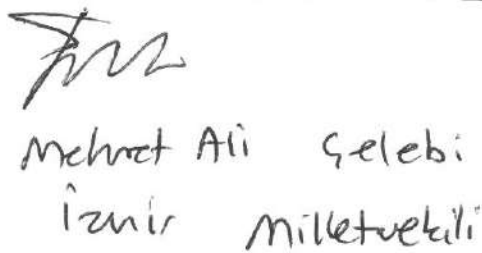 Mehmet Ali Çelebi
İzmir Milletvekili